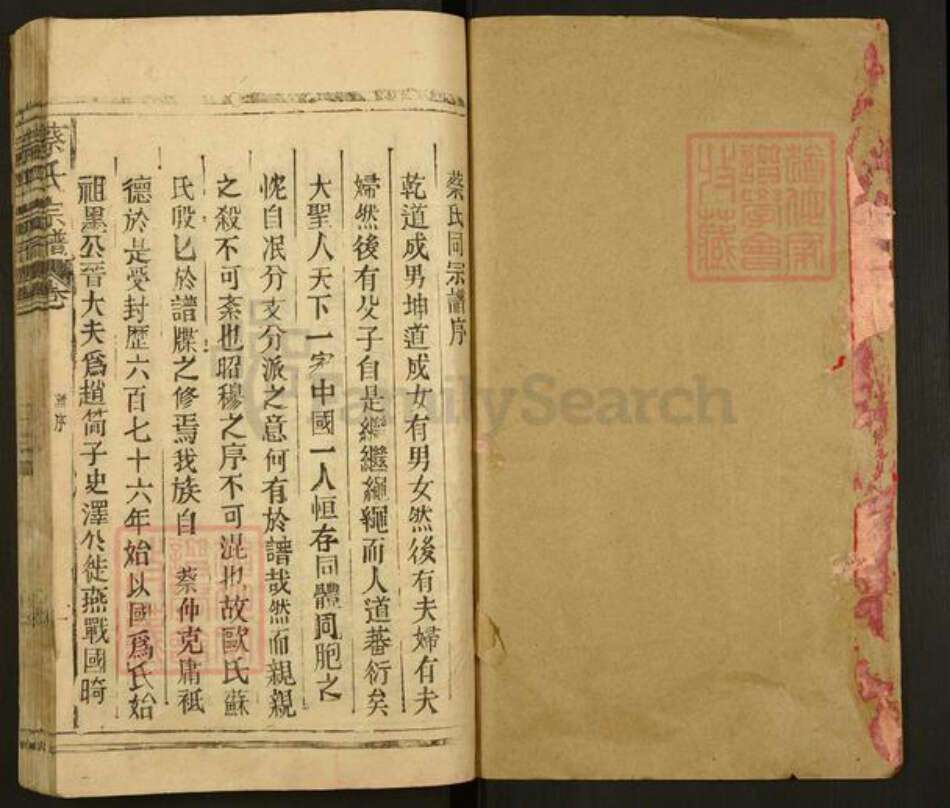 蔡氏同宗譜序
乾道成男坤道成女有男女然後有夫婦有夫
婦然後有父子自是繼繼繩繩而人道蕃衍矣
大聖人天下一家中國一人恒存同體同胞之
忱自冺分支分派之意何有於譜哉然而親親
之殺不可紊也昭穆之序不可混也故歐氏蘇
氏殷匕於譜牒之修焉我族自 蔡仲克庸祗
德於是受封歷六百七十六年始以國爲氏始
祖黑公晉大夫爲趙簡子史澤公徙燕戰國時
蔡氏宗譜
卷
譜序
一
FamilySearch